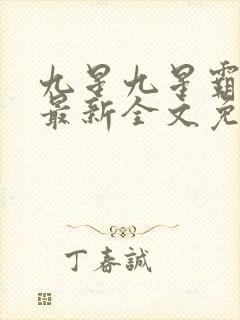 九星九星霸
最新全文免
丁春誠